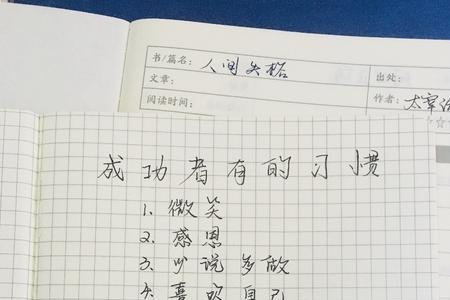 书/篇名: 人间失格 出处:
文章:
阅读时间: 作者: 太宰治
成功者有的习惯
1. 微笑
2. 感恩
3. 吵说多做
4. 喜欢自己